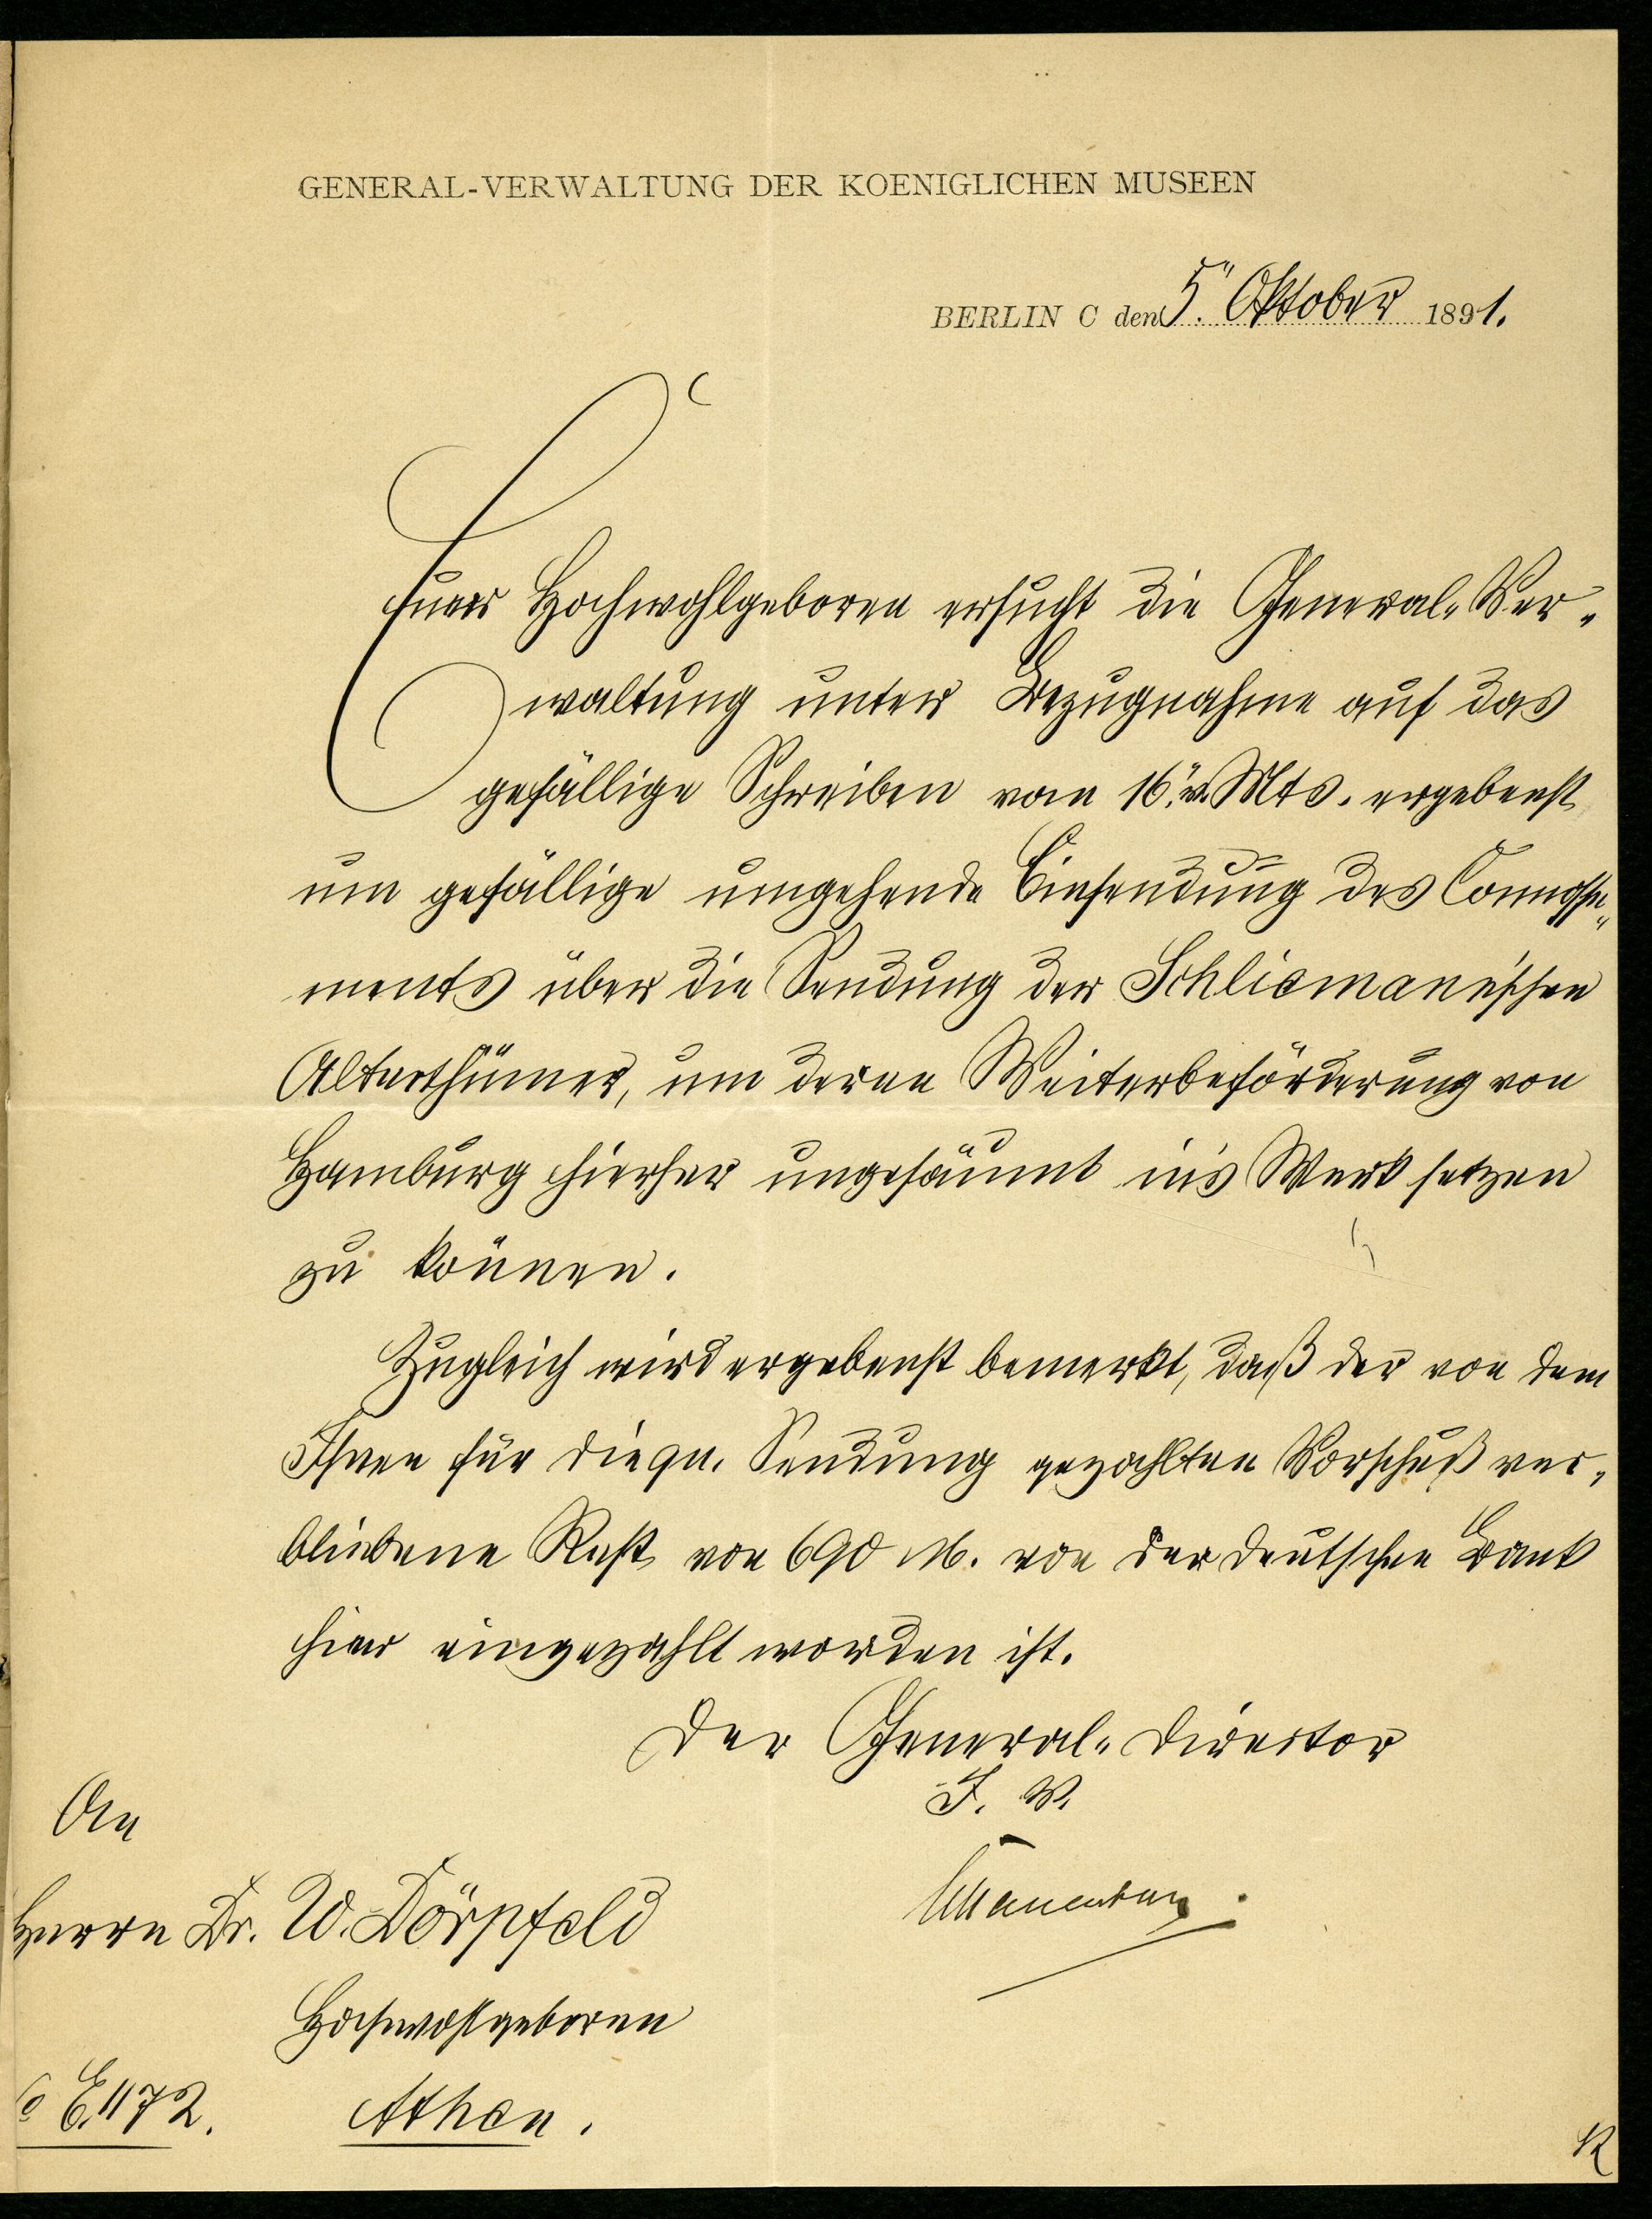 GENERAL-VERWALTUNG DER KOENIGLICHEN MUSEEN
BERLIN C den 5. Oktober 1891.
Euer Hochwohlgeboren ersucht die General-Ver-
waltung unter Bezugnahme auf das
gefällige Schreiben vom 16. v. Mts. ergebenst
um gefällige umgehende Einsendung des Connosse-
ments über die Sendung der Schliemann'schen
Alterthümer, um deren Weiterbeförderung von
Hamburg hierher ungesäumt in's Werk setzen
zu können.
Zugleich wird ergebenst bemerkt, daß der von dem
Ihnen für die qu. Sendung gezahlten Vorschuß ver-
bliebene Rest von 690 M. von der Deutschen Bank
hier eingezahlt worden ist.
Der General-Director
I. V.
An
Herrn Dr. W. Dörpfeld
Hochwohlgeboren
Athen.
E. 1172.
R